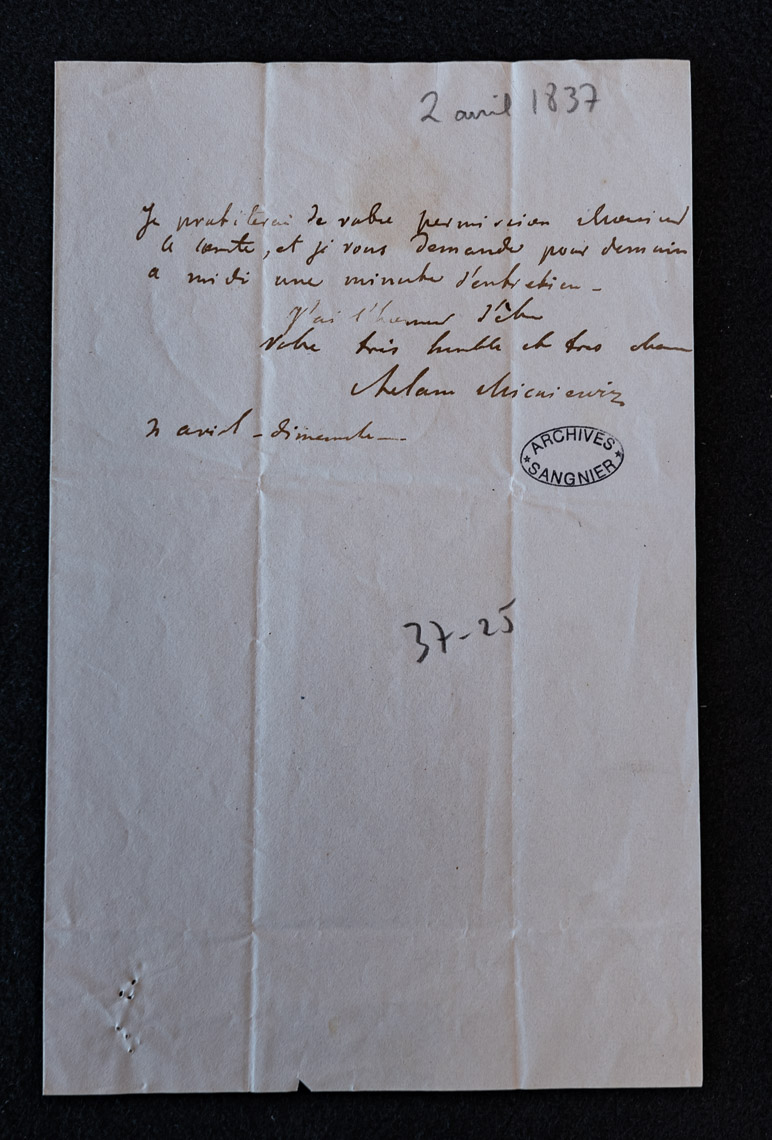 2 avril 1837
Je profiterai de votre permission Monsieur
le comte, et je vous demande pour demain
a midi une minute d'entretien -
J'ai l'honneur d'être
Votre très humble et tres
Adam Mickiewicz
2 avril - dimanche -
ARCHIVES
SANGNIER
37-25